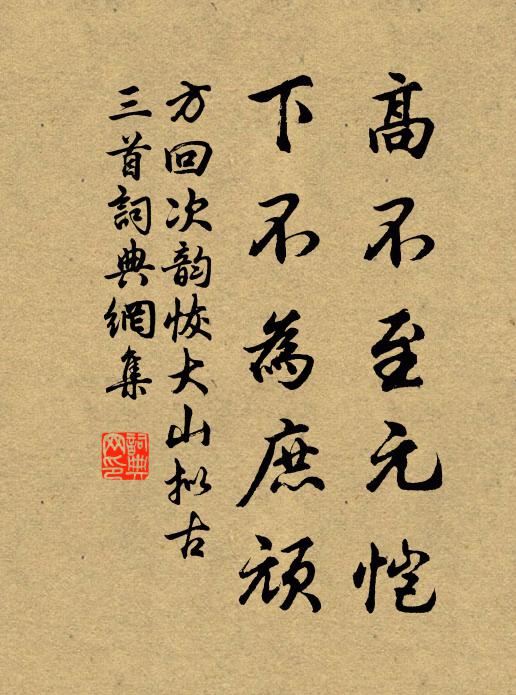 高不至元恺
下不為庶頑
方回次韵恢大山拟古
三首詞典網集
詞典网印